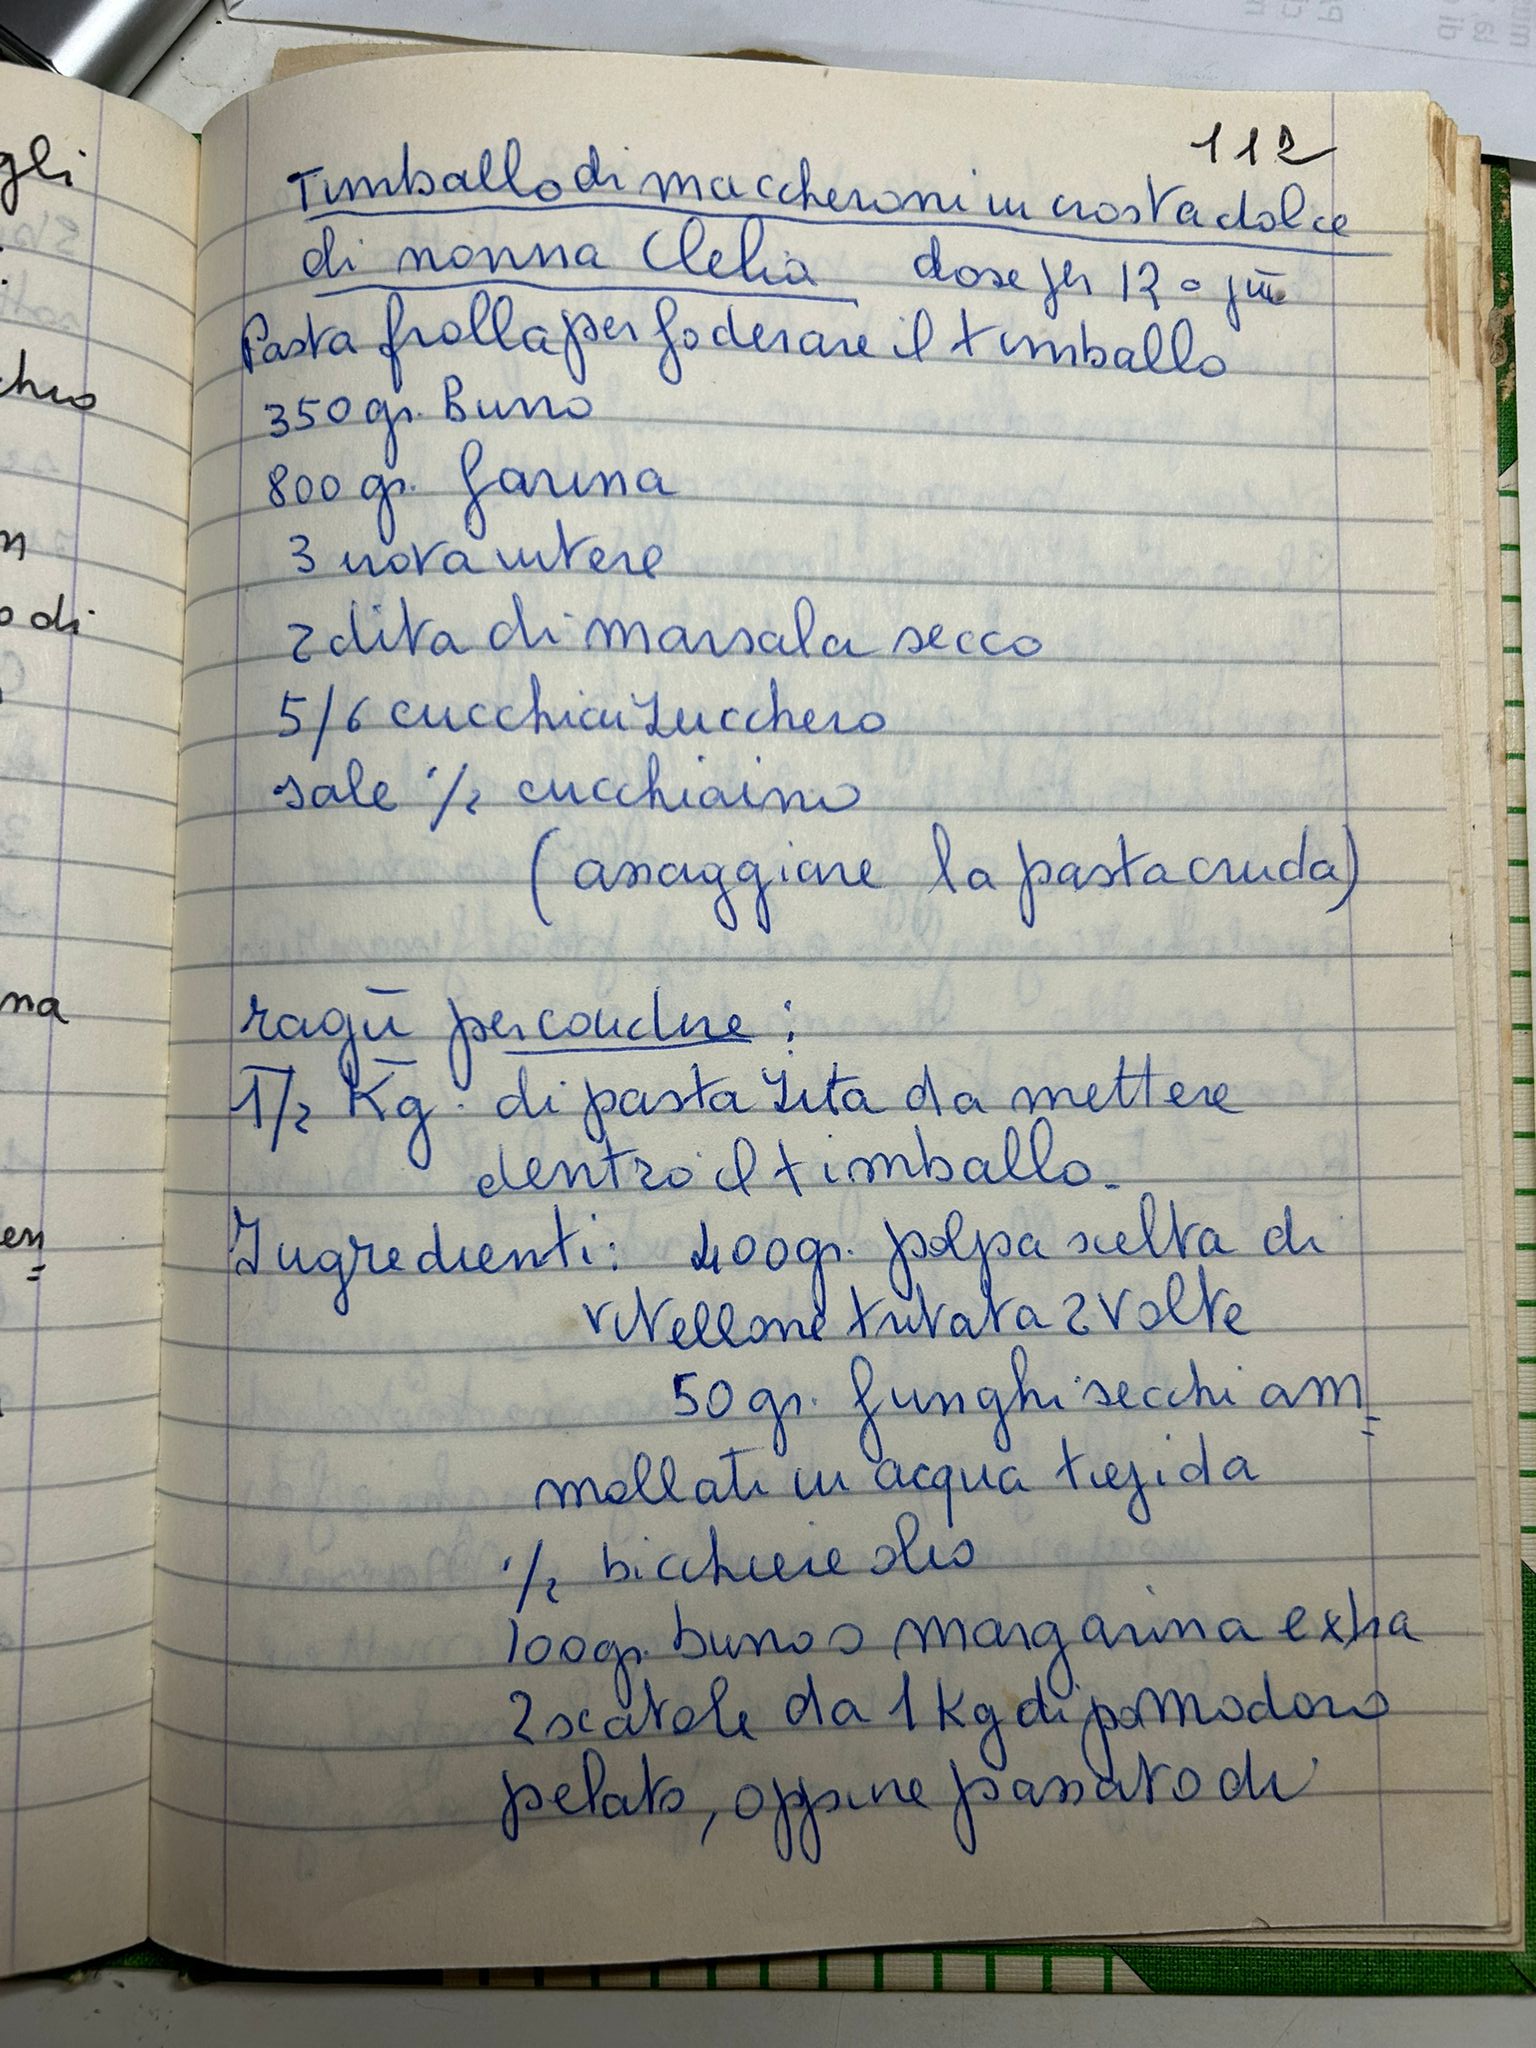 112
Timballo di maccheroni in crosta dolce
di nonna Clelia dose per 12 o più
Pasta frolla per foderare il timballo
350 gr. Burro
800 gr. farina
3 uova intere
2 dita di marsala secco
5/6 cucchiai zucchero
sale 1/2 cucchiaino
(assaggiare la pasta cruda)
ragù per condire :
1/2 Kg. di pasta zita da mettere
dentro il timballo.
Ingredienti: 400 gr. polpa scelta di
vitellone tritata 2 volte
50 gr. funghi secchi am=
mollati in acqua tiepida
1/2 bicchiere olio
100 gr. burro o margarina extra
2 scatole da 1 Kg di pomodoro
pelato, oppure passato di
gli
chio
n
o di
na
en
=